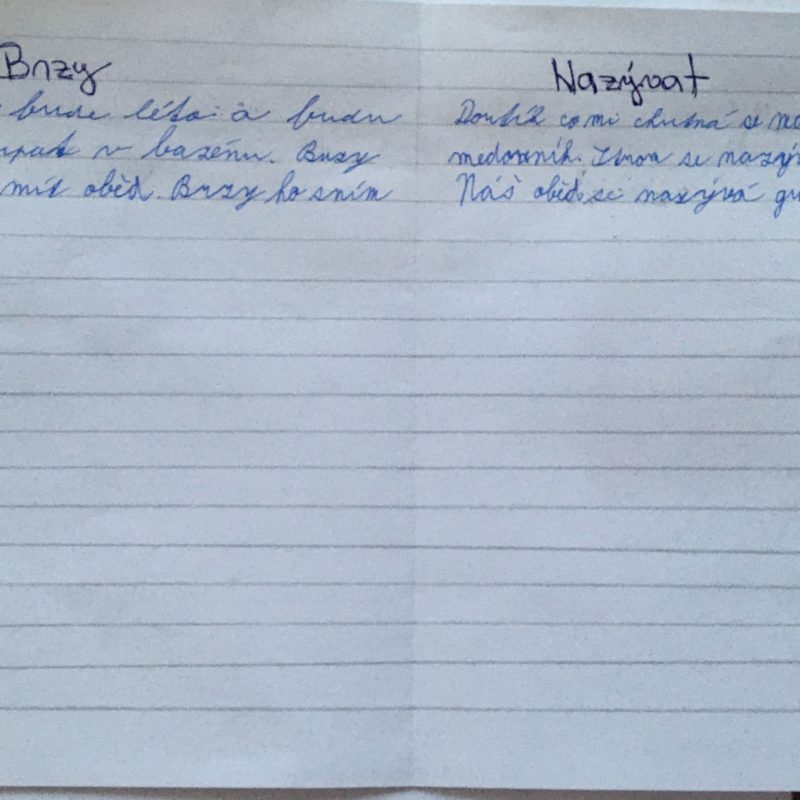 Brzy
bude léto a budu
v bazénu. Brzy
mít oběd. Brzy ho sním
Nazývat
co mi chutná se
medovník. se
Náš oběd se nazývá